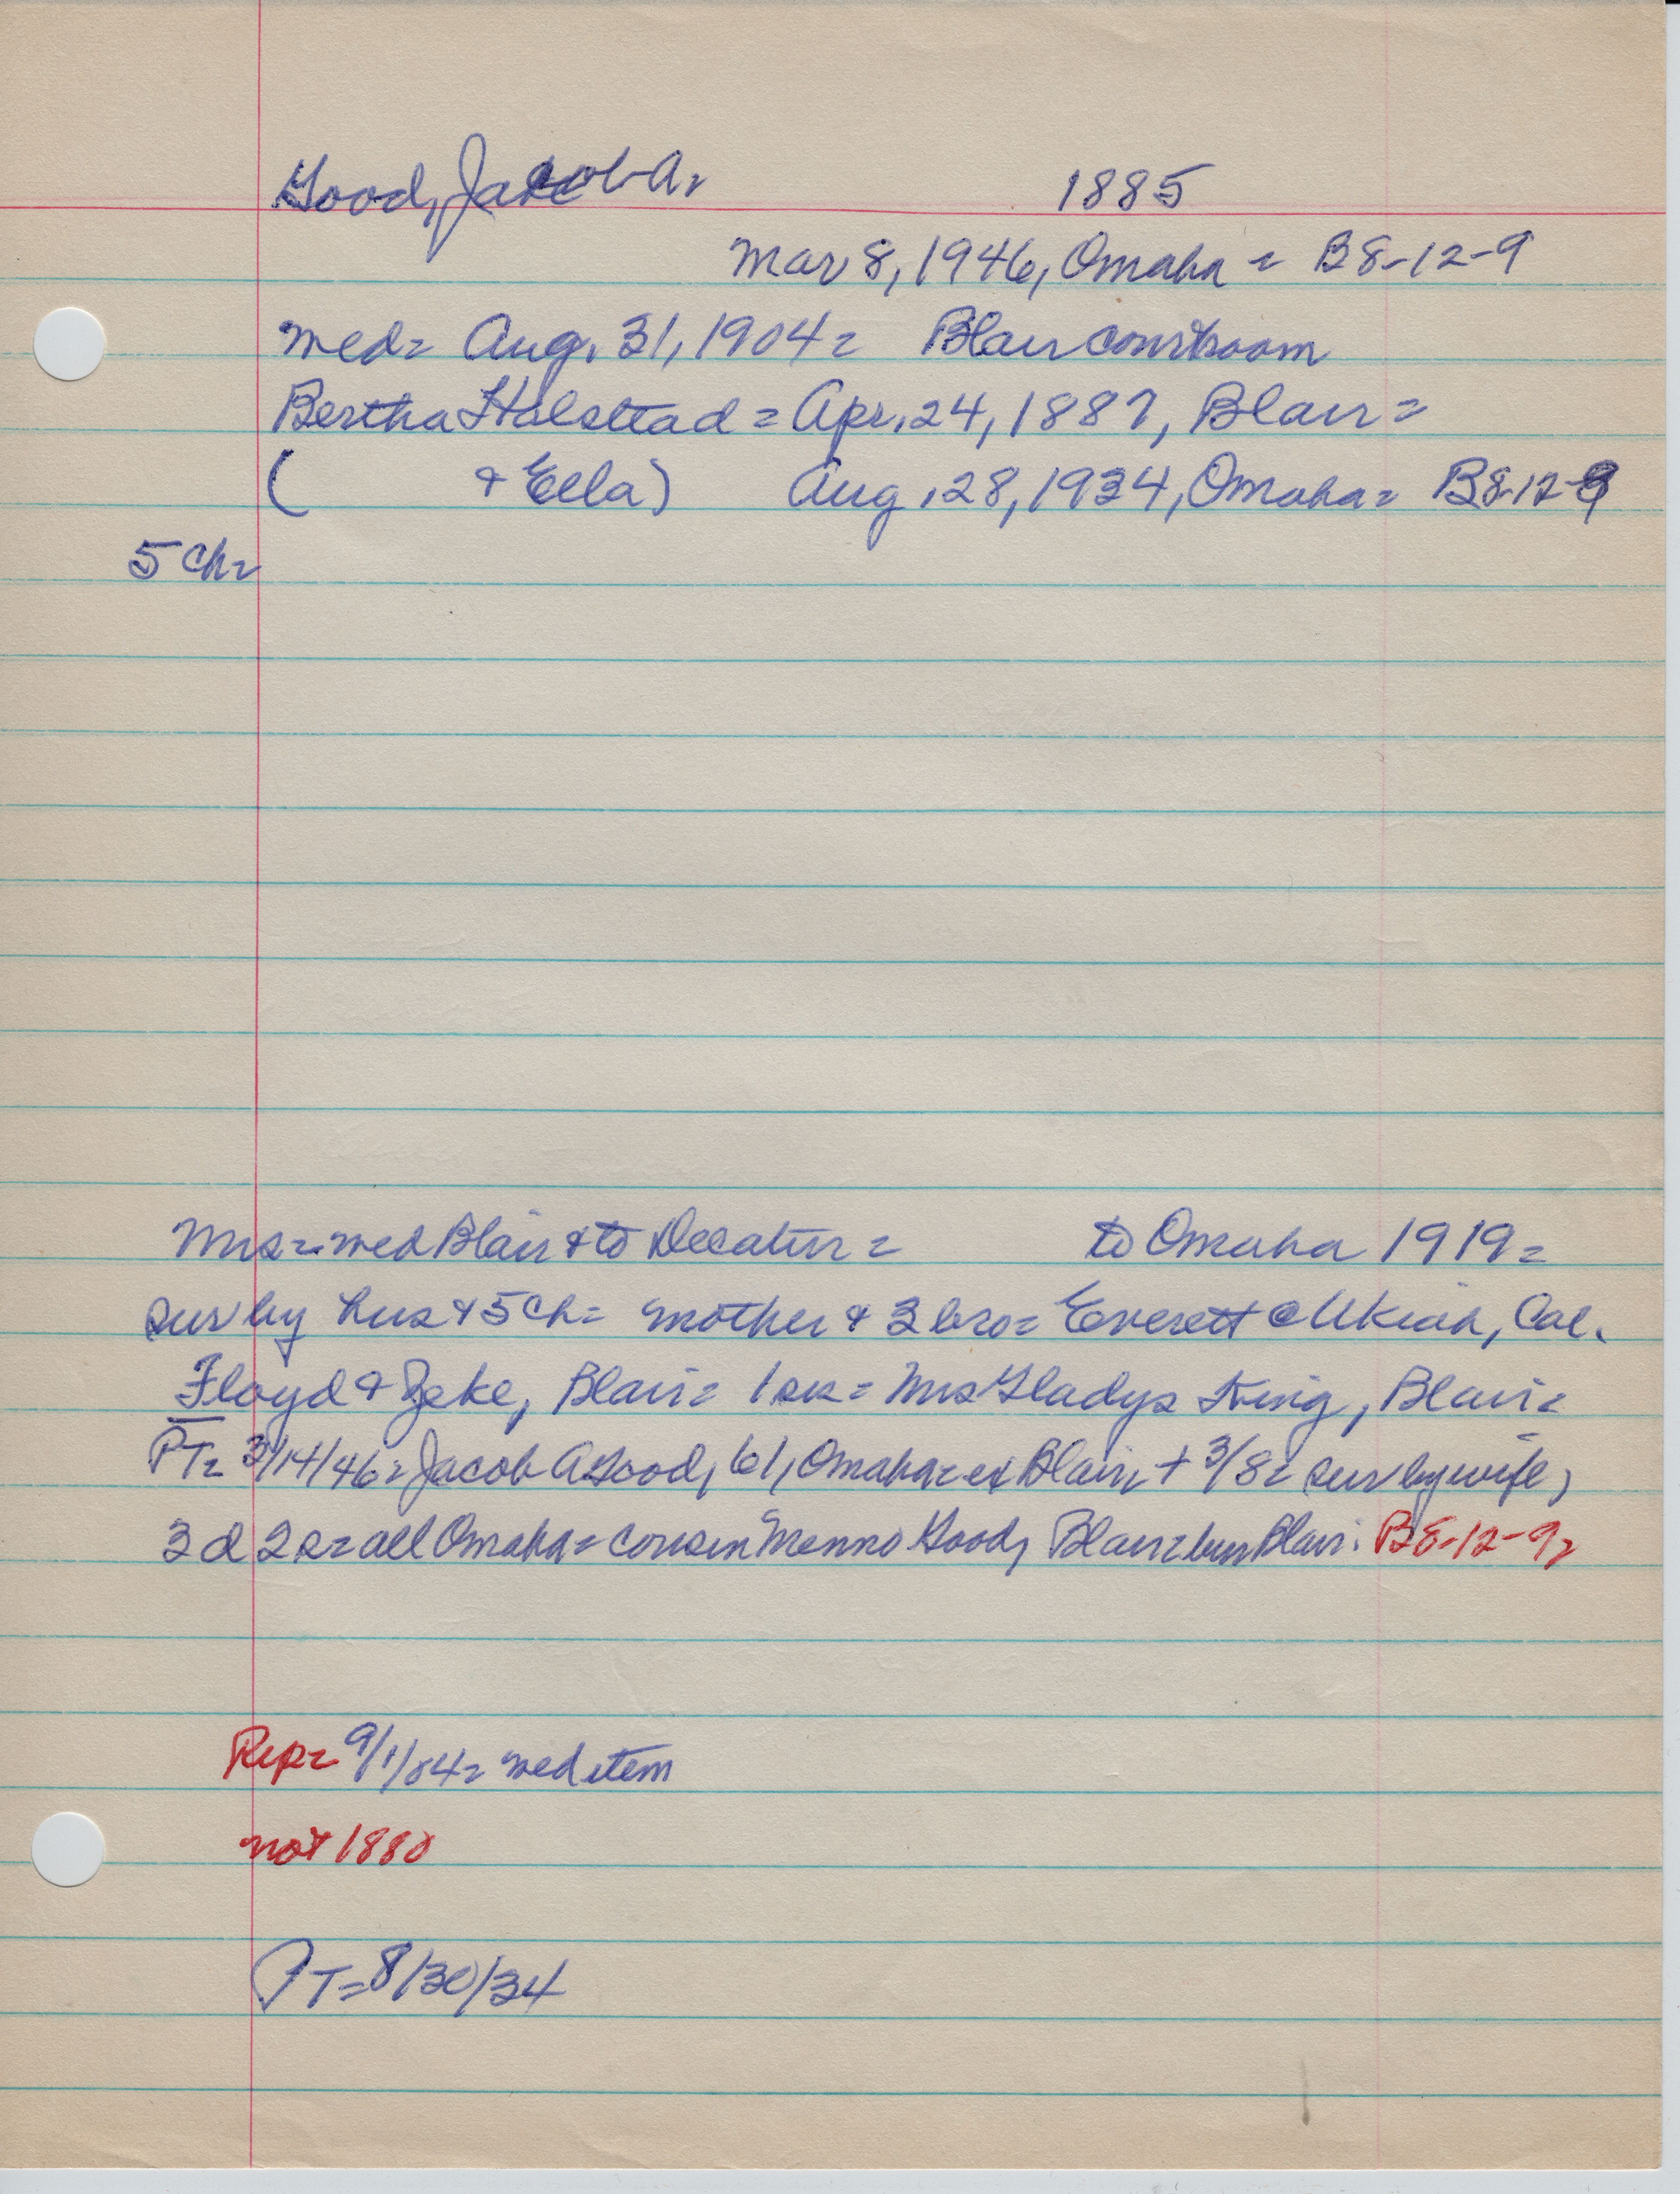 Good, Jacob A= 1885
Mar 8, 1946, Omaha = B8-12-9
wed= Aug. 31, 1904= Blair courtroom
Bertha Halstead = Apr. 24, 1887, Blair=
( + Ella) Aug. 28, 1934, Omaha= B8-12-9
5 Ch=
Mrs= wed Blair + to Decatur = to Omaha 1919=
sur by hus + 5 Ch= mother + 3 bro= Everett @ Ukiah, Cal.
Floyd + Zeke, Blair= 1 sis= Mrs Gladys King, Blair=
PT= 3/14/46= Jacob A Good, 61, Omaha= ex Blair, + 3/8= sur by wife,
3 d 2 s= all Omaha= cousin Menno Good, Blair= bur Blair. B8-12-9=
Rep= 9/1/04= wed item
not 1880
PT= 8/30/34